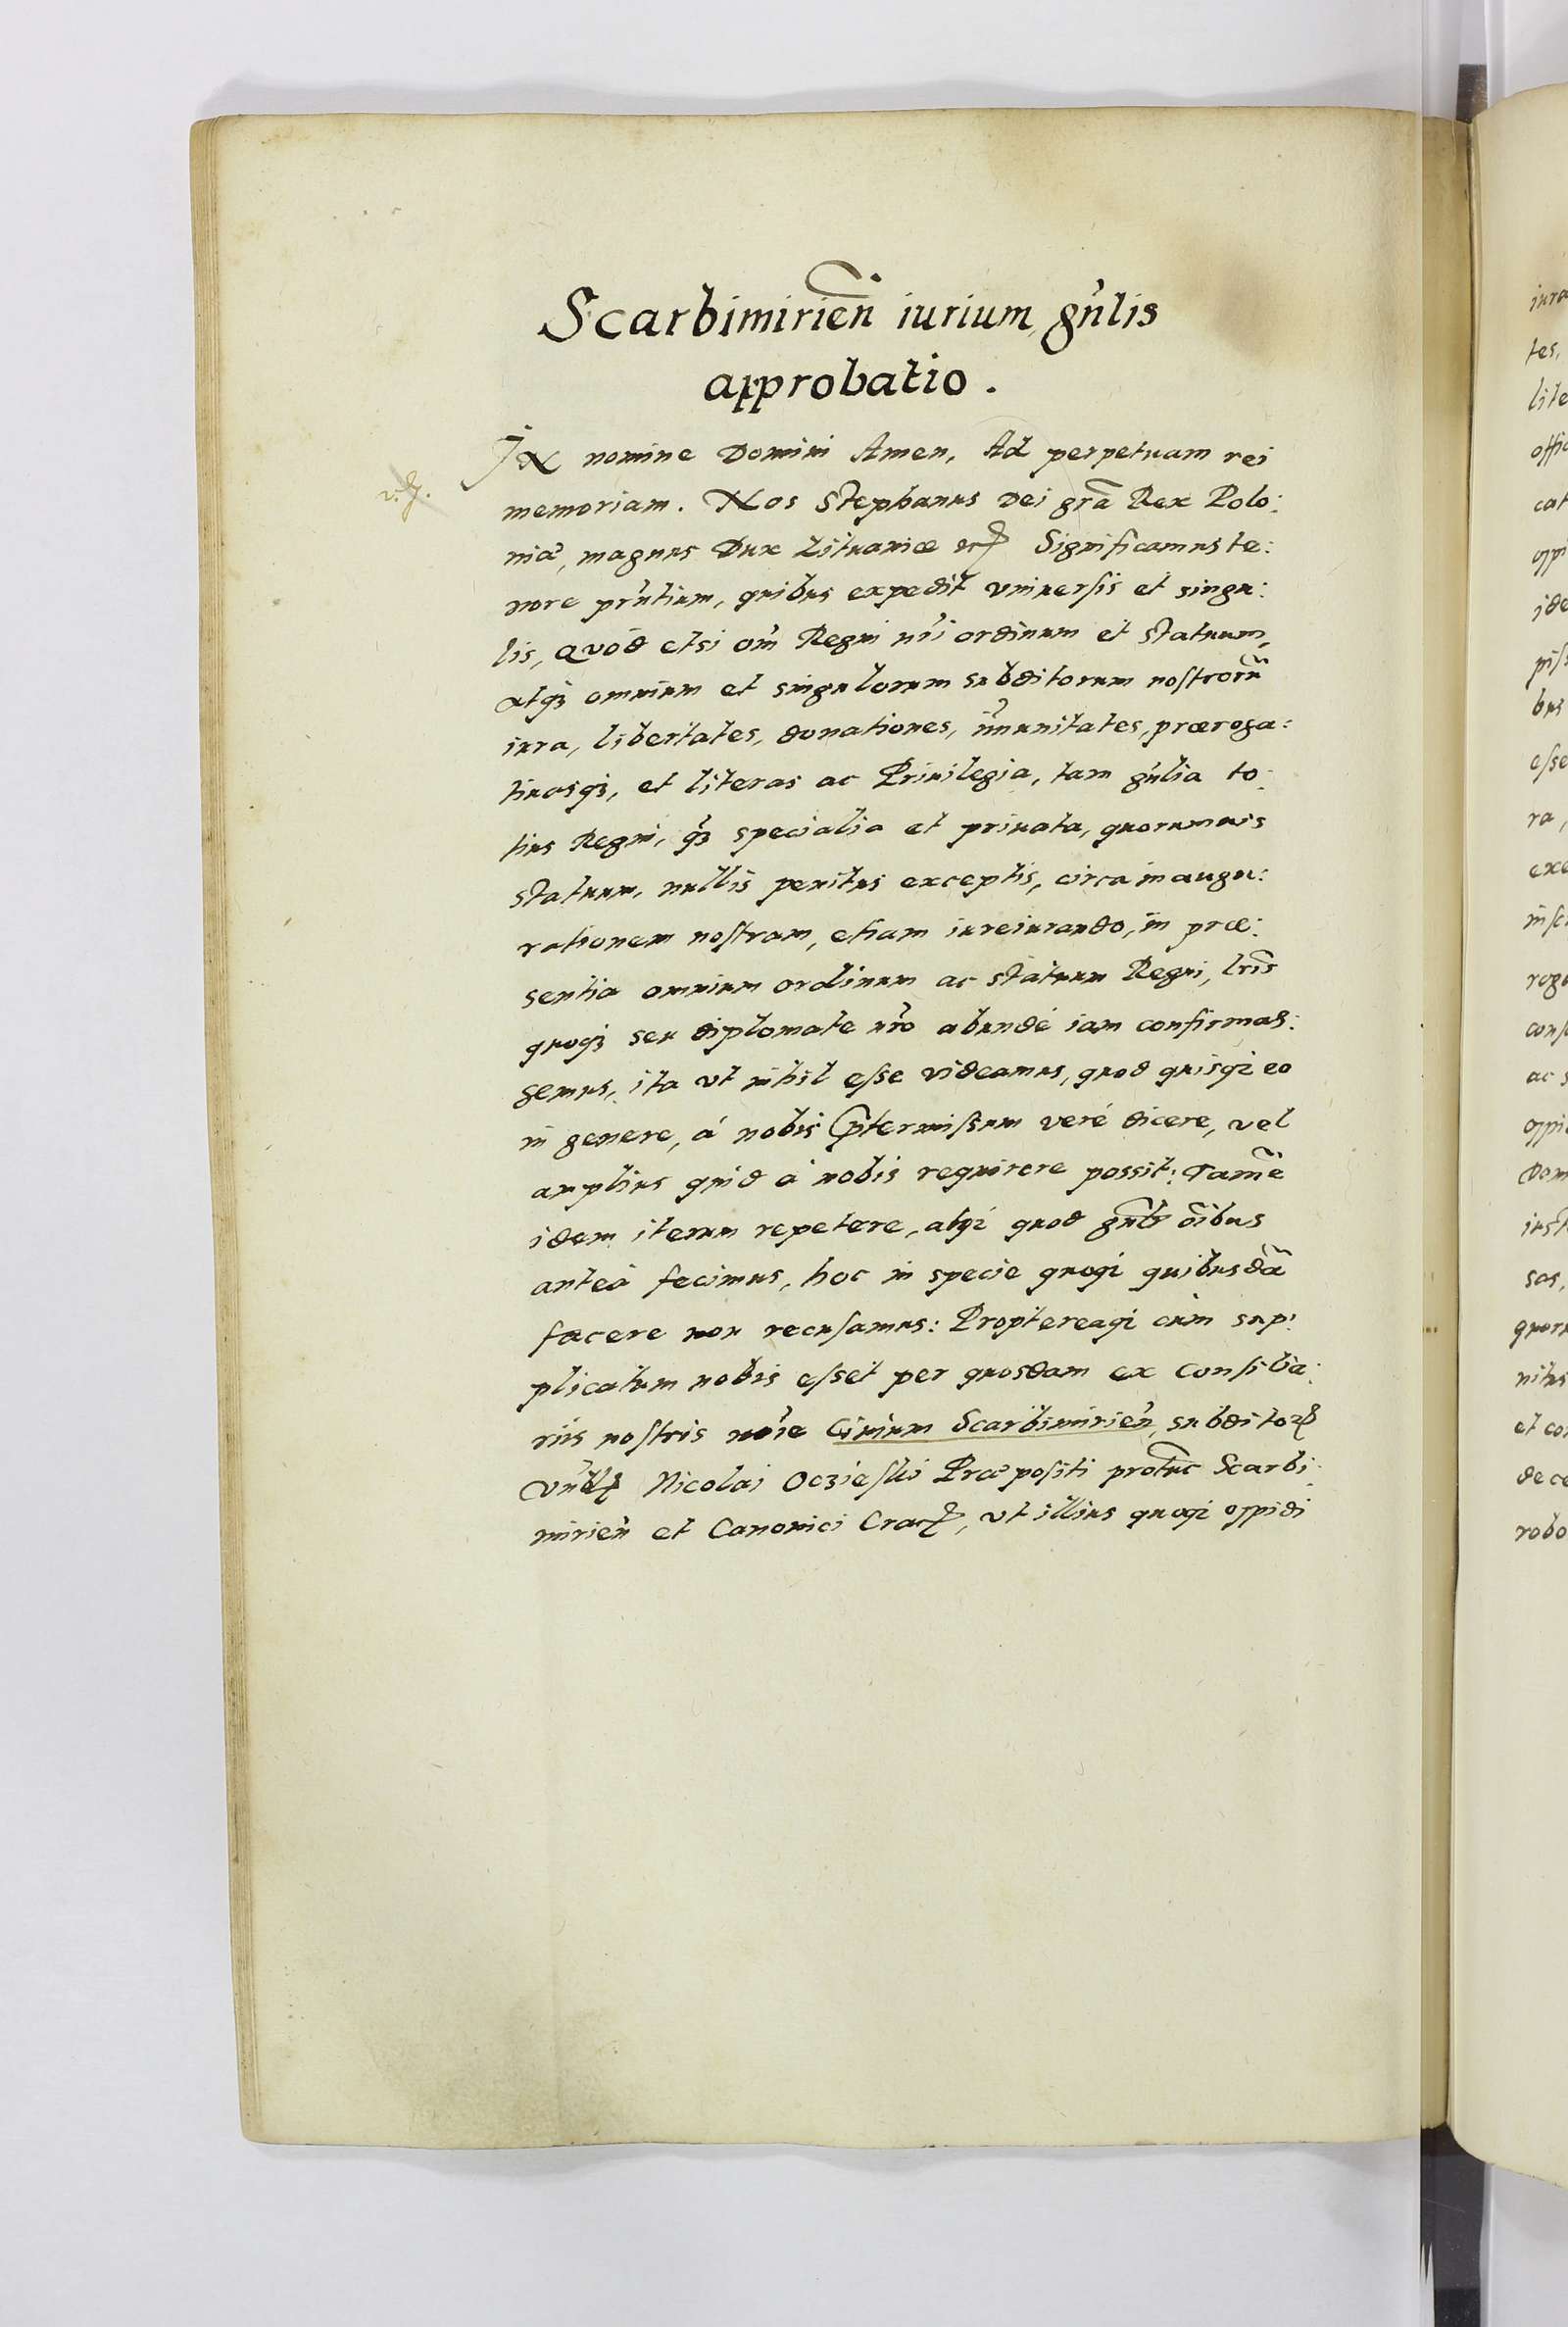 Scarbimirień iurium gńlis
approbatio.
IN nomine Domini Amen, Ad perpetuam rei
memoriam. Nos Stephanus Dei grā Rex Polo:
niæ, magnus Dux Lituaniæ etc Significamus te:
nore pr̃ntium, quibus expedit vniuersis et singu:
lis, Quod etsi om̃ Regni nr̃i ordinum et statuum,
atqꝫ omnium et singulorum subditorum nostrorũ
iura, libertates, donationes, im̃unitates, præroga:
tiuasqꝫ, et literas ac Priuilegia, tam gñlia to:
tius Regni, qꝫ specialia et priuata, quorumuis
statuum, nullis penitus exceptis, circa inaugu:
rationem nostram, etiam iureiurando, in præ:
sentia omnium ordinum ac statuum Regni, lr̃is
quoqꝫ seu diplomate nr̃o abundè iam confirmas:
semus, ita vt nihil esse videamus, quod quisqꝫ eo
in genere, à nobis p̃termissum verè dicere, vel
amplius quid à nobis requirere possit: Tamẽ
idem iterum repetere, atqꝫ quod gñlr õibus
anteà fecimus, hoc in specie quoqꝫ quibusdã
facere non recusamus: Proptereaqꝫ cùm sup:
plicatum nobis esset per quosdam ex Consilia:
riis nostris nõie Ciuium Scarbimirień, subditoꝝ
Vñblꝭ Nicolai Oczieski Præpositi protũc Scarbi:
mirień et Canonici Cracꝭ, vt illius quoqꝫ oppidi
iura
tes,
lite
offic
cat
oppi
ide
pis
bus
esse
ra,
exe
insc
roga
cons
ac s
oppi
Dom
iust
sas,
quoru
nitus
et con
dece
robo